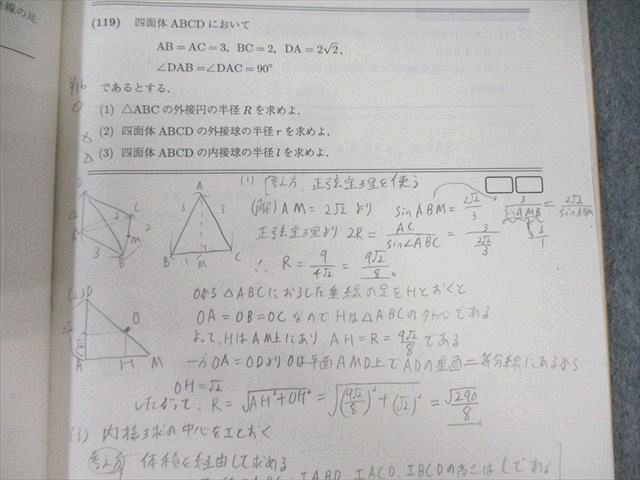 線の足
(119) 四面体 ABCD において
AB = AC = 3, BC = 2, DA = 2√2,
∠DAB = ∠DAC = 90°
であるとする.
(1) △ABC の外接円の半径 R を求めよ.
(2) 四面体 ABCD の外接球の半径 r を求めよ.
(3) 四面体 ABCD の内接球の半径 l を求めよ.
(1) 考え方 正弦定理を使う
(解) AM = 2√2 より sin ABM = 2√2/3
3/sin AMB = 2√2/sin ABM
正弦定理より 2R = AC/sin∠ABC = 3/(2√2/3)
∴ R = 9/4√2 = 9√2/8
(2)
Oから△ABCにおろした垂線の足をHとおくと
OA = OB = OC なので Hは△ABCの外心である
よって, HはAM上にあり AH = R = 9√2/8 である
一方 OA = OD より Oは平面AMD上でADの垂直二等分線にあるから
OH = √2
したがって, R = √(AH² + OH²) = √((9√2/8)² + (√2)²) = √290/8
(3) 内接球の中心をIとおく
考え方 体積を経由して求める
IABD, IACD, IBCDの高さは l であ